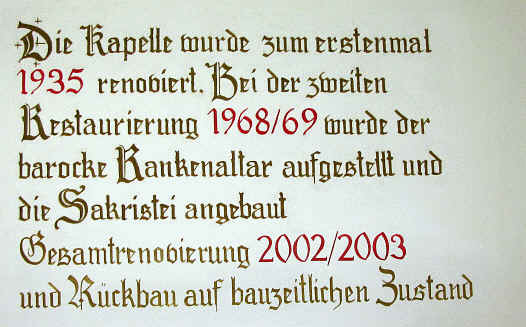 Die Kapelle wurde zum erstenmal
1935 renoviert. Bei der zweiten
Restaurierung 1968/69 wurde der
barocke Rankenaltar aufgestellt und
die Sakristei angebaut
Gesamtrenovierung 2002/2003
und Rückbau auf bauzeitlichen Zustand